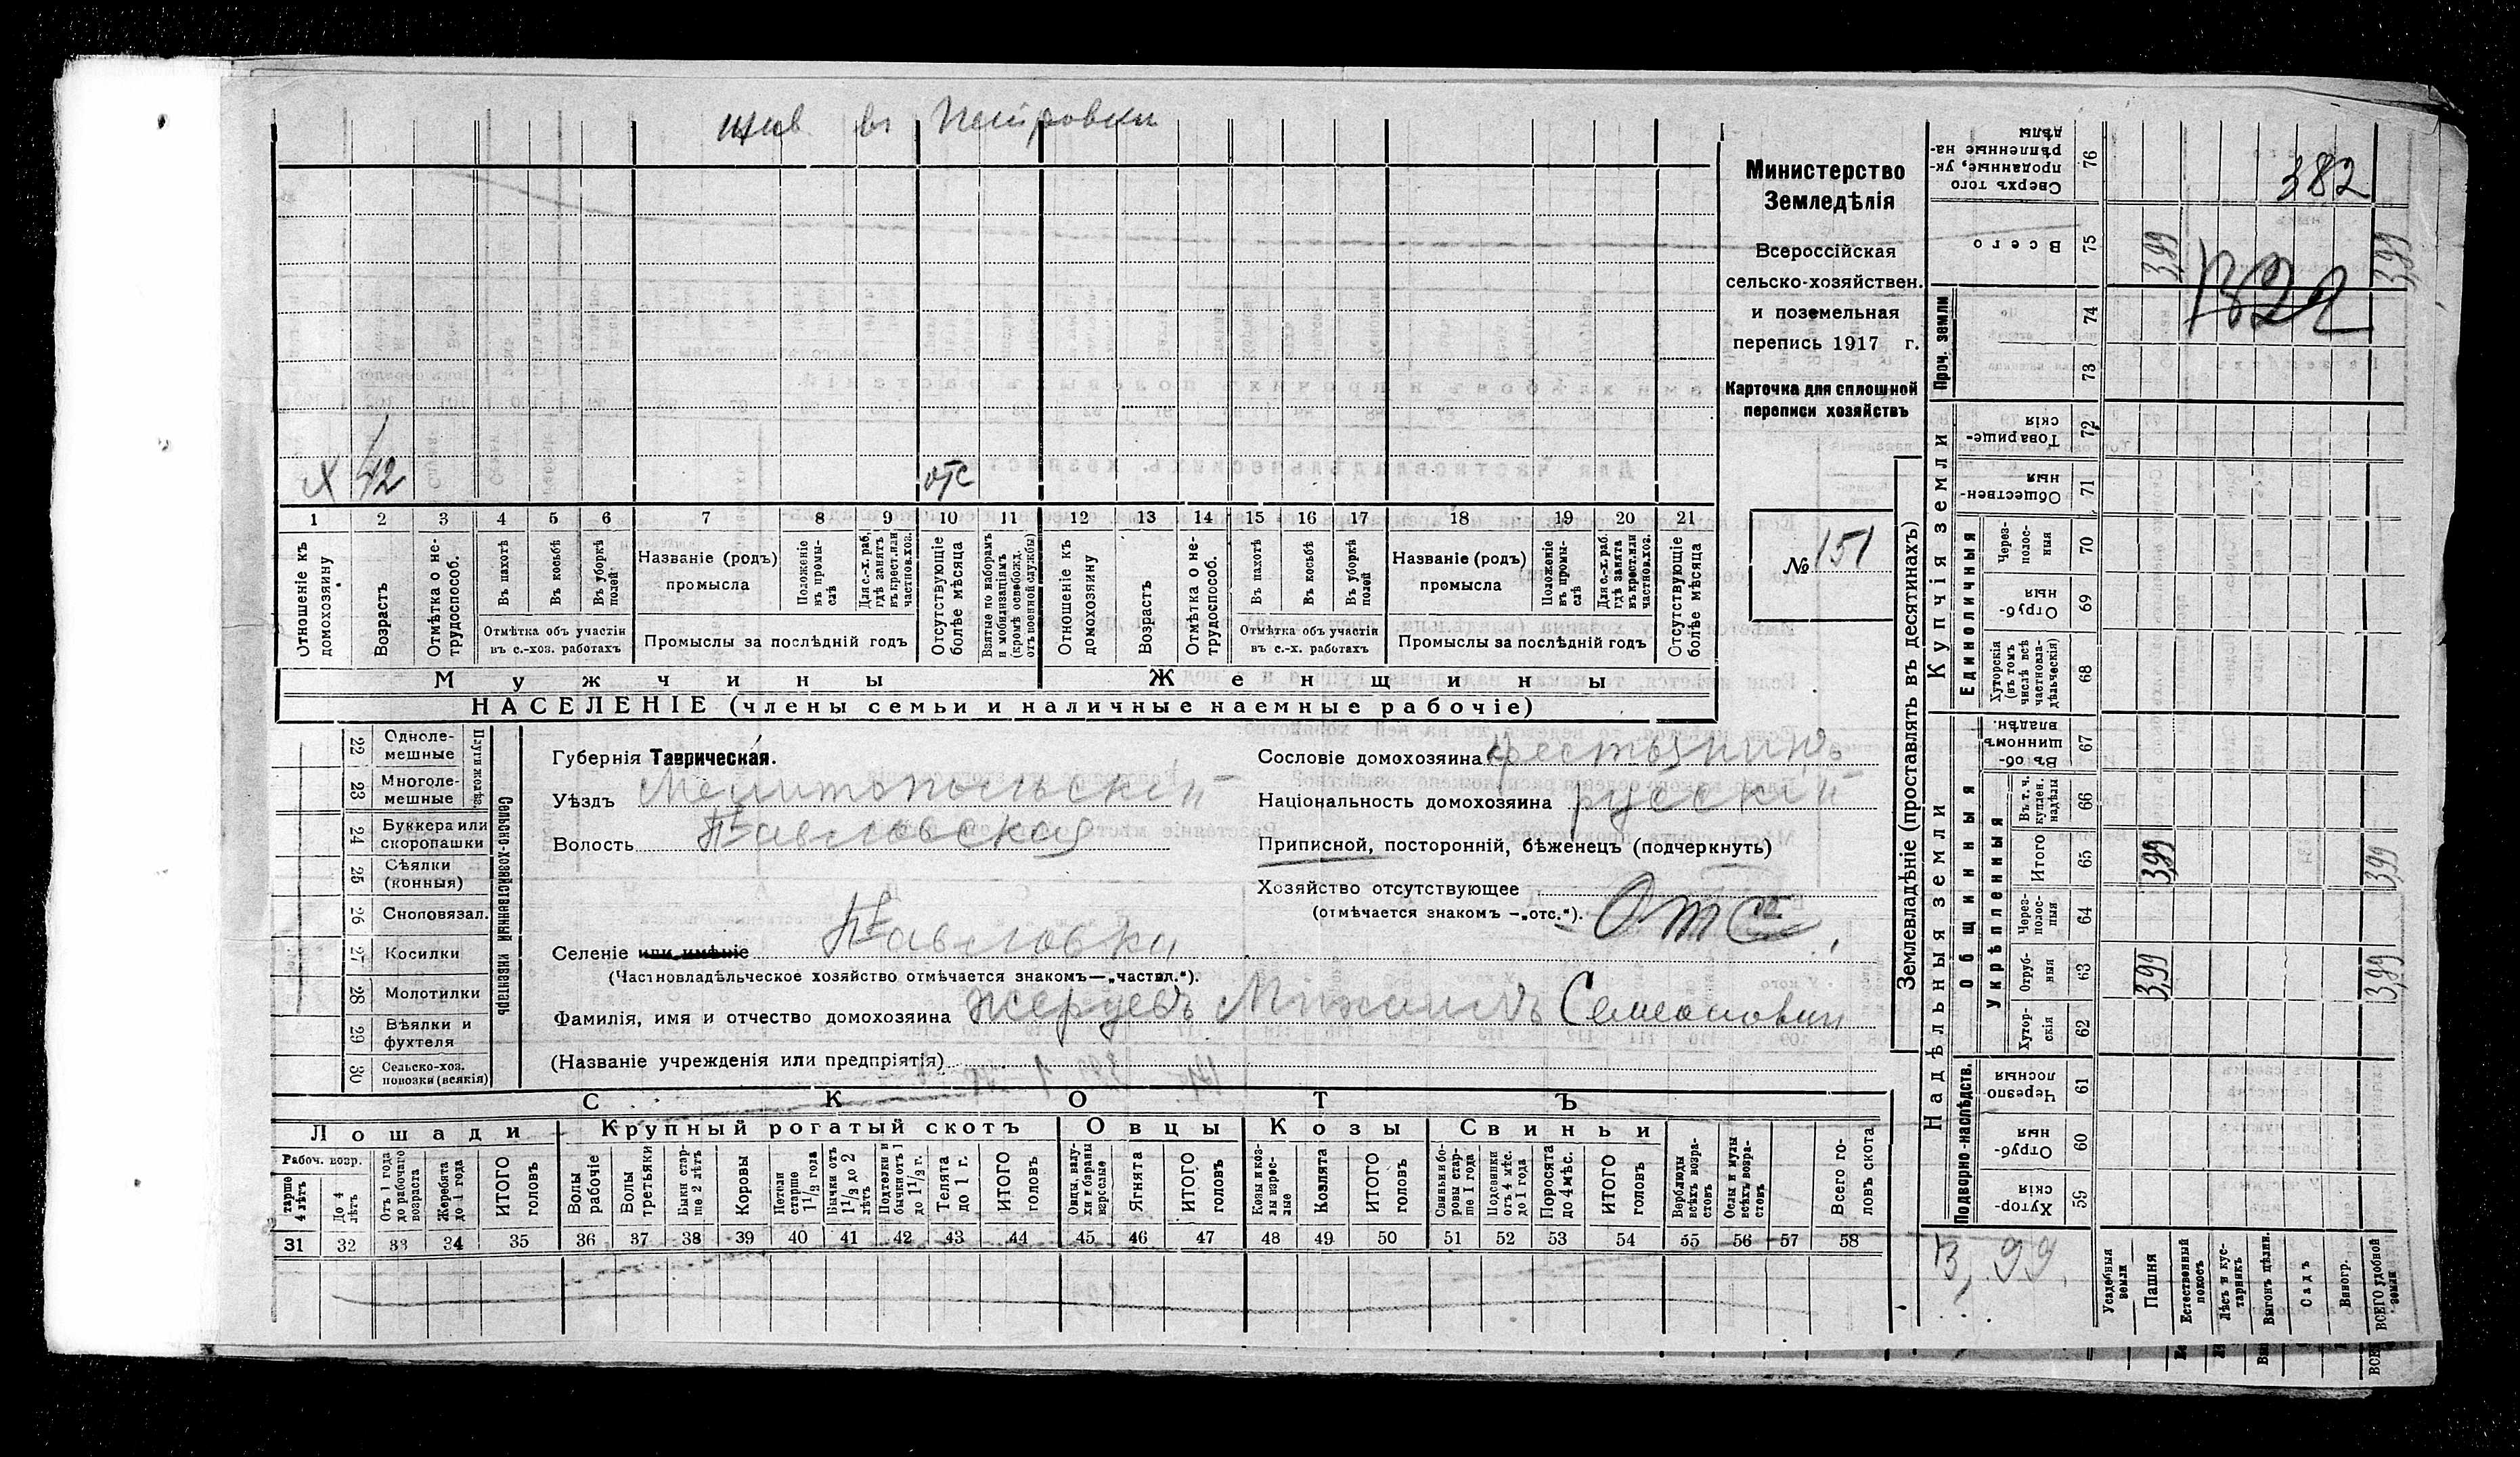 жив. въ Петровки
х 42 отс
1 2 3 4 5 6 7 8 9 10 11 12 13 14 15 16 17 18 19 20 21
Отношеніе къ домохозяину
Возрастъ
Отмѣтка о не-трудоспособ.
Въ пахотѣ
Въ косьбѣ
Въ уборкѣ полей
Отмѣтка объ участіи въ с.-хоз. работахъ
Названіе (родъ) промысла
Положеніе въ промы-слѣ
Для с.-х. раб. гдѣ занятъ въ крест. или частнов. хоз.
Промыслы за послѣдній годъ
Отсутствующіе болѣе мѣсяца
Взятые по наборамъ и мобилизаціямъ (кромѣ освобожд. отъ военной службы)
Отношеніе къ домохозяину
Возрастъ
Отмѣтка о не-трудоспособ.
Въ пахотѣ
Въ косьбѣ
Въ уборкѣ полей
Отмѣтка объ участіи въ с.-х. работахъ
Названіе (родъ) промысла
Положеніе въ промы-слѣ
Для с.-х. раб. гдѣ занята въ крест. или частнов. хоз.
Промыслы за послѣдній годъ
Отсутствующіе болѣе мѣсяца
Мужчины
Женщины
НАСЕЛЕНІЕ (члены семьи и наличные наемные рабочіе)
Министерство
Земледѣлія
Всероссійская
сельско-хозяйствен.
и поземельная
перепись 1917 г.
Карточка для сплошной
переписи хозяйствъ
№ 151
22 Одноле-мешные
23 Многоле-мешные
Плуги желѣз.
24 Буккера или скоропашки
25 Сѣялки (конныя)
26 Сноповязал.
27 Косилки
28 Молотилки
29 Вѣялки и фухтеля
30 Сельско-хоз. повозки (всякія)
Сельско-хозяйственный инвентарь
Губернія Таврическая.
Уѣздъ Мелитопольскій
Волость Павловская
Селеніе или имѣніе Павловка
(Частновладѣльческое хозяйство отмѣчается знакомъ—„частвл.“).
Сословіе домохозяина крестьянинъ
Національность домохозяина русскій
Приписной, посторонній, бѣженецъ (подчеркнуть)
Хозяйство отсутствующее
(отмѣчается знакомъ —„отс.“). Отс
Фамилія, имя и отчество домохозяина Михаилъ Семеонович
(Названіе учрежденія или предпріятія)
СКОТЪ
Лошади
Крупный рогатый скотъ
Овцы
Козы
Свиньи
Рабоч. возр.
старше 4 лѣтъ
До 4 лѣтъ
Отъ 1 года до рабочаго возраста
Жеребята до 1 года
ИТОГО головъ
Волы рабочіе
Волы третьяки
Быки стар-ше 2 лѣтъ
Коровы
Нетели старше 1½ года
Бычки отъ 1½ до 2 лѣтъ
Подтелки и бычки отъ 1 до 1½ г.
Телята до 1 г.
ИТОГО головъ
Овцы, валу-хи и бараны взрослые
Ягнята
ИТОГО головъ
Козы и коз-лы взрос-лые
Козлята
ИТОГО головъ
Свиньи и бо-ровы стар-ше 1 года
Подсвинки отъ 4 мѣс. до 1 года
Поросята до 4 мѣс.
ИТОГО головъ
Верблюды всѣхъ возра-стовъ
Ослы и мулы всѣхъ возра-стовъ
Всего го-ловъ скота
31 32 33 34 35 36 37 38 39 40 41 42 43 44 45 46 47 48 49 50 51 52 53 54 55 56 57 58
Землевладѣніе (проставлять въ десятинахъ)
Сверхъ того проданные, ук-рѣпленные на-дѣлы 76
382
Всего 75
3,99 3,99
1322
Проч. земли 74 73
Купчія земли
Товарище-скія 72
Обществен-ныя 71
Единоличныя
Через-полос-ныя 70
Отруб-ныя 69
Хуторскія (въ томъ числѣ всѣ частновла-дѣльческія) 68
Надѣльныя земли
Общинныя
Въ об-щинномъ владѣн. 67
Укрѣпленныя
Въ т. ч. куплен. надѣлы 66
Итого 65
3,99 3,99
Через-полос-ныя 64
Отруб-ныя 63
3,99 3,99
Хутор-скія 62
Подворно-наслѣдств.
Черезпо лосныя 61
Отруб-ныя 60
Хутор-скія 59
3,99.
Усадебныя земли
Пашня
Естественный покосъ
Лѣсъ и кус-тарник
Выгонъ цѣлин.
Садъ
Виногр.
ВСЕГО удобной земли